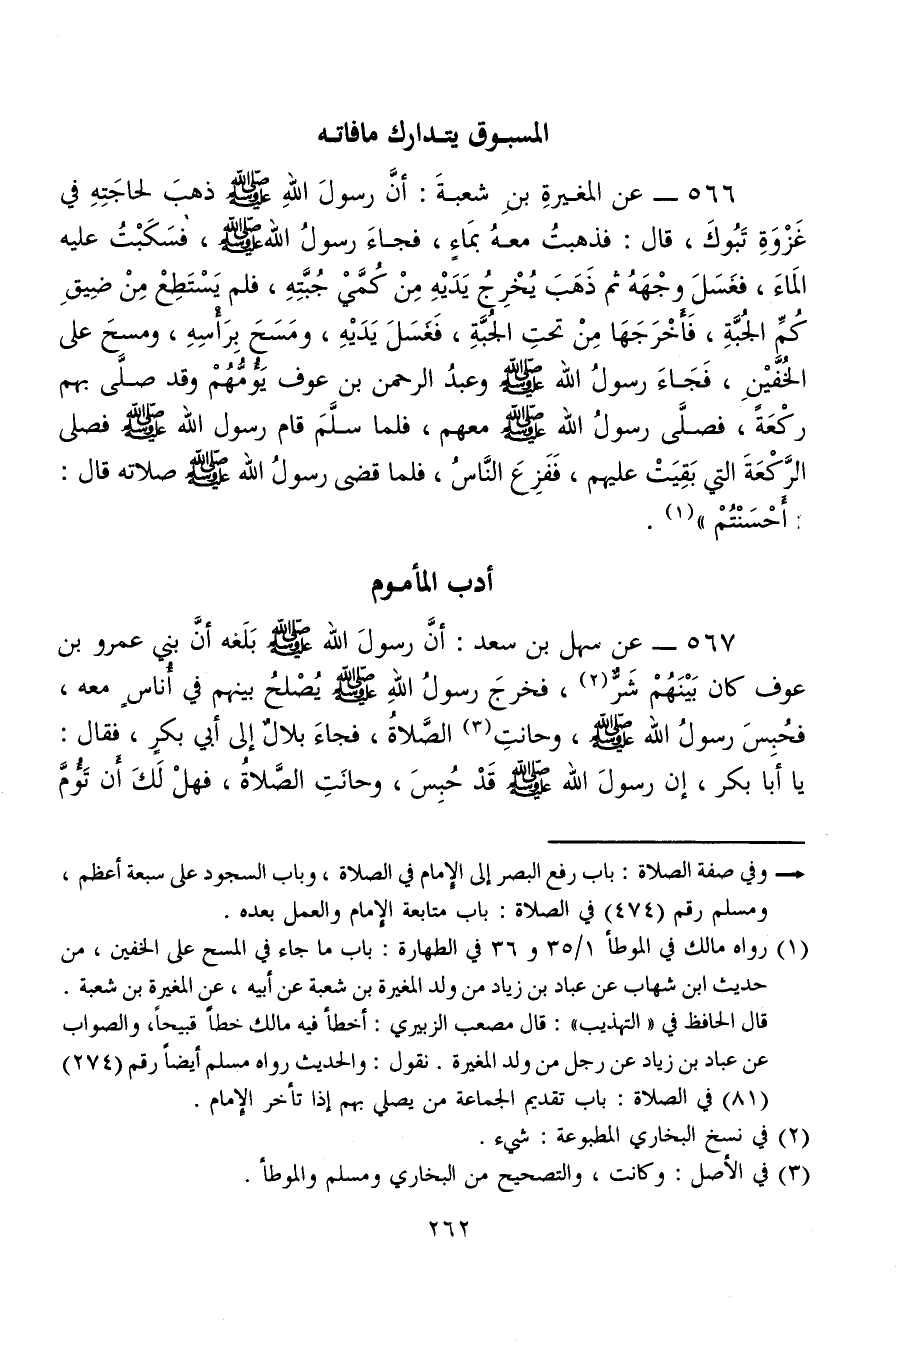 المسبوق يتدارك مافاته
٥٦٦ ــ عن المغيرةِ بنِ شعبةَ : أنَّ رسولَ اللهِ ﷺ ذهبَ لحاجَتِهِ في
غَزْوَةِ تَبُوكَ ، قال : فذهبتُ معهُ بماءٍ ، فجاءَ رسولُ اللهِ ﷺ ، فسَكَبْتُ عليه
الماءَ ، فغَسَلَ وجْهَهُ ثم ذَهَبَ يُخْرِجُ يَدَيْهِ مِنْ كُمَّيْ جُبَّتِهِ ، فلم يَسْتَطِعْ مِنْ ضيقِ
كُمِّ الجُبَّةِ ، فَأَخْرَجَهَا مِنْ تحتِ الجُبَّةِ ، فَغَسَلَ يَدَيْهِ ، ومَسَحَ بِرَأسِهِ ، ومسحَ على
الخُفَّيْنِ ، فَجَاءَ رسولُ الله ﷺ وعبدُ الرحمن بن عوف يَؤُمُّهُمْ وقد صلَّى بهم
ركْعَةً ، فصلَّى رسولُ الله ﷺ معهم ، فلما سلَّمَ قام رسول الله ﷺ فصلى
الرَّكْعَةَ التي بَقِيَتْ عليهم ، فَفَزِعَ النَّاسُ ، فلما قضى رسولُ الله ﷺ صلاته قال :
: أَحْسَنْتُمْ »(١) .
أدب المأموم
٥٦٧ ــ عن سهل بن سعد : أنَّ رسولَ الله ﷺ بَلَغه أنَّ بني عمرو بن
عوف كان بَيْنَهُمْ شَرٌّ(٢) ، فخرجَ رسولُ اللهِ ﷺ يُصْلحُ بينهم في أُناسٍ معه ،
فحُبِسَ رسولُ الله ﷺ ، وحانتِ(٣) الصَّلاةُ ، فجاءَ بلالٌ إلى أبي بكرٍ ، فقال :
يا أبا بكر ، إن رسولَ الله ﷺ قَدْ حُبِسَ ، وحانَتِ الصَّلاةُ ، فهلْ لَكَ أن تَؤُمَّ
← وفي صفة الصلاة : باب رفع البصر إلى الإمام في الصلاة ، وباب السجود على سبعة أعظم ،
ومسلم رقم (٤٧٤) في الصلاة : باب متابعة الإمام والعمل بعده .
(١) رواه مالك في الموطأ ٣٥/١ و ٣٦ في الطهارة : باب ما جاء في المسح على الخفين ، من
حديث ابن شهاب عن عباد بن زياد من ولد المغيرة بن شعبة عن أبيه ، عن المغيرة بن شعبة .
قال الحافظ في « التهذيب» : قال مصعب الزبيري : أخطأ فيه مالك خطأً قبيحاً، والصواب
عن عباد بن زياد عن رجل من ولد المغيرة . نقول : والحديث رواه مسلم أيضاً رقم (٢٧٤)
(٨١) في الصلاة : باب تقديم الجماعة من يصلي بهم إذا تأخر الإمام .
(٢) في نسخ البخاري المطبوعة : شيء .
(٣) في الأصل : وكانت ، والتصحيح من البخاري ومسلم والموطأ .
٢٦٢